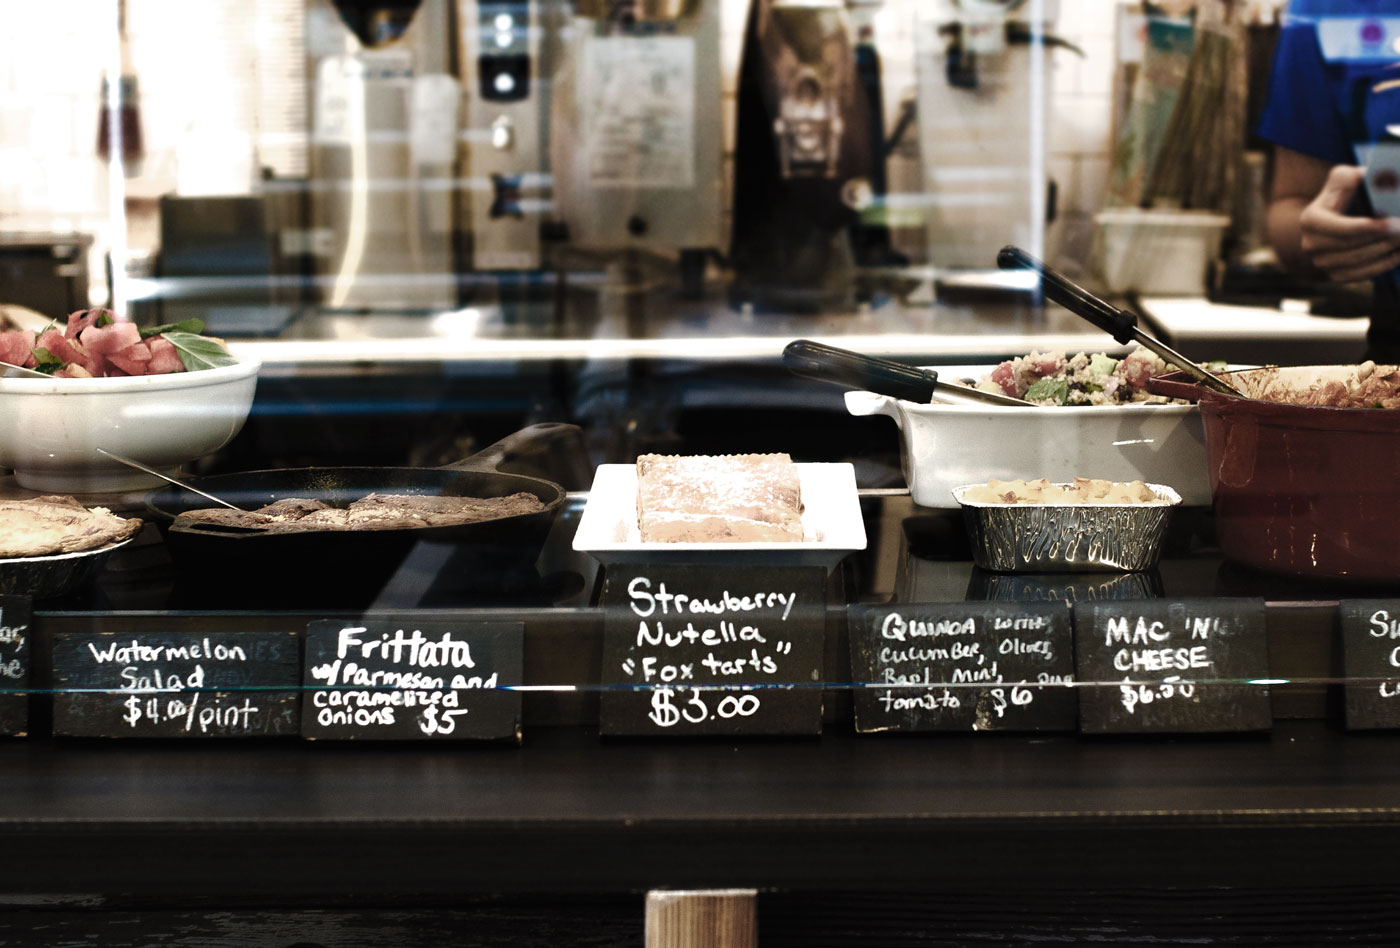 Watermelon
Salad
$4.00/pint
Frittata
w/ Parmesan and
caramelized
onions $5
Strawberry
Nutella
"Fox tarts"
$3.00
Quinoa with
cucumber, Olives,
Basil Mint,
tomato $6
MAC 'N'
CHEESE
$6.50